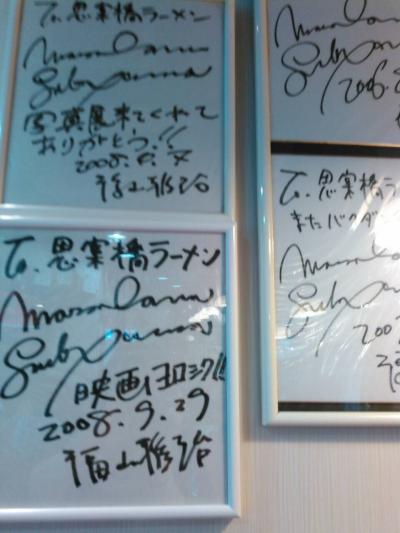 To. 思案橋ラーメン
Masaharu
Fukuyama
写真展来てくれて
ありがとう!!
福山雅治
To. 思案橋ラーメン
Masaharu
Fukuyama
映画ヨロシク!!
2008.9.29
福山雅治
Masaharu
Fukuyama
To. 思案橋ラ
またバクダン
Masaharu
Fukuyama
福